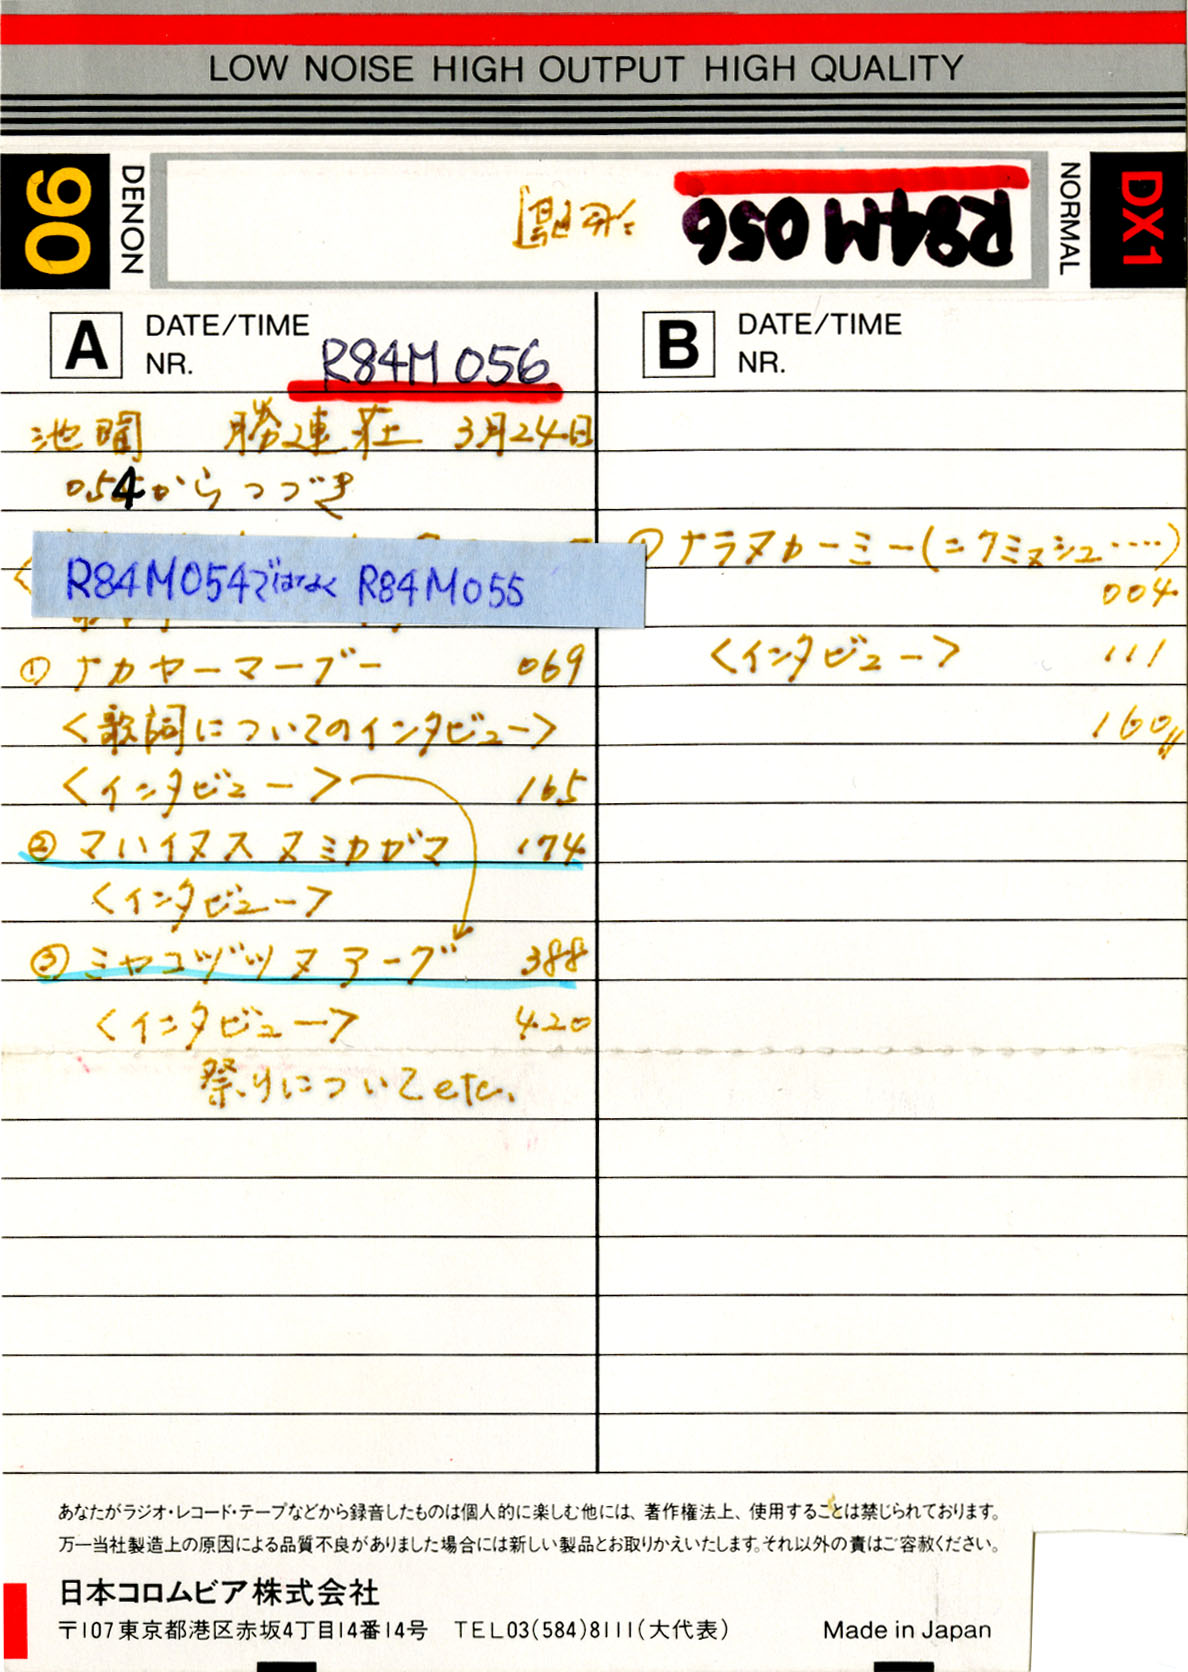 LOW NOISE HIGH OUTPUT HIGH QUALITY
90
DENON
R84M056
NORMAL
DX1
A
DATE/TIME
NR.
R84M056
池間 勝連荘 3月24日
054からつづき
R84M054ではなく R84M055
① ナカヤーマーブー 069
<歌詞についてのインタビュー>
<インタビュー> 165
② マハイヌスヌミガガマ 174
<インタビュー>
③ ミヤコヅツヌアーグ 388
<インタビュー> 420
祭りについてetc.
B
DATE/TIME
NR.
ナラヌカーミー(ニクミヌシュ‥‥)
004
<インタビュー> 111
160〃
あなたがラジオ・レコード・テープなどから録音したものは個人的に楽しむ他には、著作権法上、使用することは禁じられております。
万一当社製造上の原因による品質不良がありました場合には新しい製品とお取りかえいたします。それ以外の責はご容赦ください。
日本コロムビア株式会社
〒107東京都港区赤坂4丁目14番14号 TEL03(584)8111(大代表)
Made in Japan